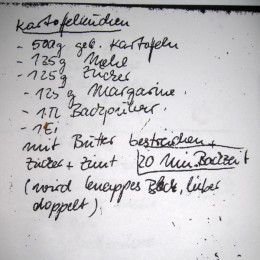 Kartoffelkuchen
- 500g gek. Kartoffeln
- 125g Mehl
- 125g Zucker
- 125g Margarine
- 1 TL Backpulver
- 1 Ei
mit Butter bestreichen +
Zucker + Zimt 20 Min. Backzeit
(wird knappes Blech, lieber
doppelt)